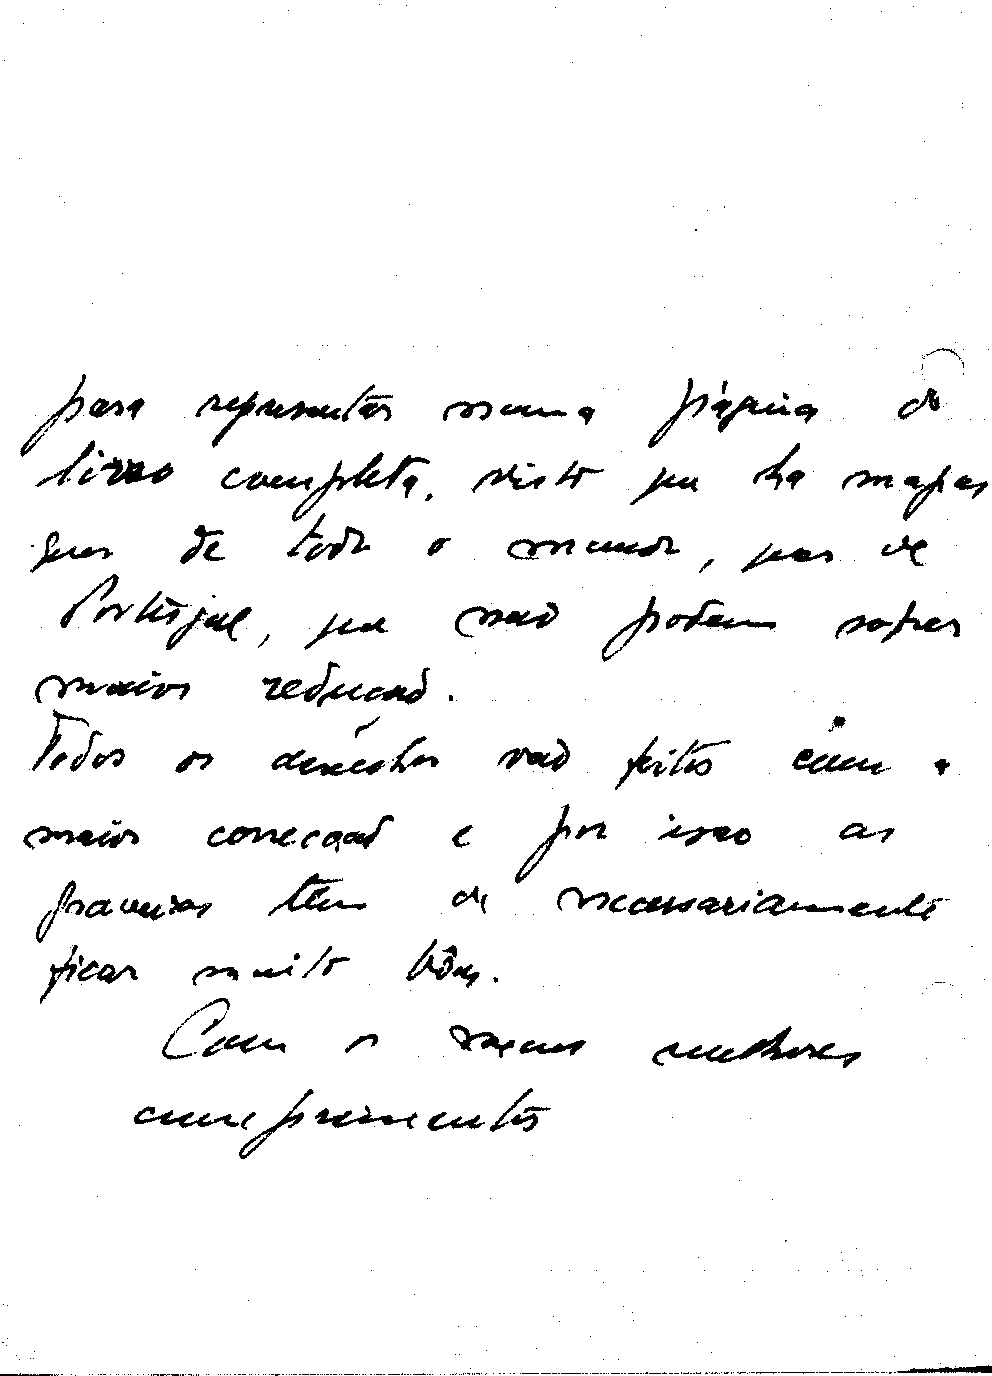 para representar numa página do
livro completa, visto que ha mapas
quer de todo o mundo, quer de
Portugal, que não podem sofrer
maior redução.
Todos os desenhos vão feitos com a
maior correcção e por isso as
gravuras têm de necessariamente
ficar muito bôas.
Com os meus melhores
cumprimentos